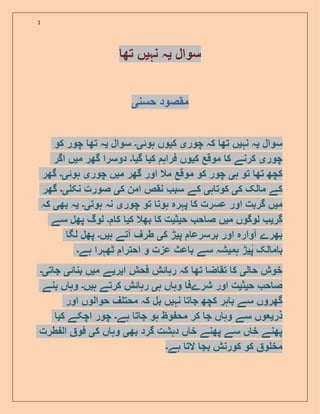 1
سوال یہ نہیں تھا
مقصود حسنی
سوال یہ نہیں تھا کہ چوری کیوں ہوئی۔ سوال یہ تھا چور کو
چوری کرنے کا موقع کیوں فراہم کیا گیا۔ دوسرا گھر میں اگر
کچھ تھا تو ہی چور کو موقع ملا اور گھر میں چوری ہوئی۔ گھر
کے مالک کی کوتاہی کے سبب نقص امن کی صورت نکلی۔ گھر
میں گربت اور عسرت کا پہرہ ہوتا تو چوری نہ ہوتی۔ یہ بھی کہ
گریب لوگوں میں صاحب حیثیت کا بھلا کیا کام۔ لوگ پھل سے
بھرے آوارہ اور برسرعام پیڑ کی طرف آتے ہیں۔ پھل لگا
بامالک پیڑ ہمیشہ سے باعث عزت و احترام ٹھہرا ہے۔
خوش حالی کا تقاضا تھا کہ رہائش فحش ایریے میں بنائی جاتی۔
صاحب حیثیت اور شرےفا وہاں ہی رہائش کرتے ہیں۔ وہاں بنے
گھروں سے باہر کچھ جاتا نہیں بل کہ مختلف حوالوں اور
ذریعوں سے وہاں جا کر محفوظ ہو جاتا ہے۔ چور اچکے کیا
پھنے خاں سے پھنے خاں دہشت گرد بھی وہاں کی فوق الفطرت
مخلوق کو کورنش بجا لاتا ہے۔